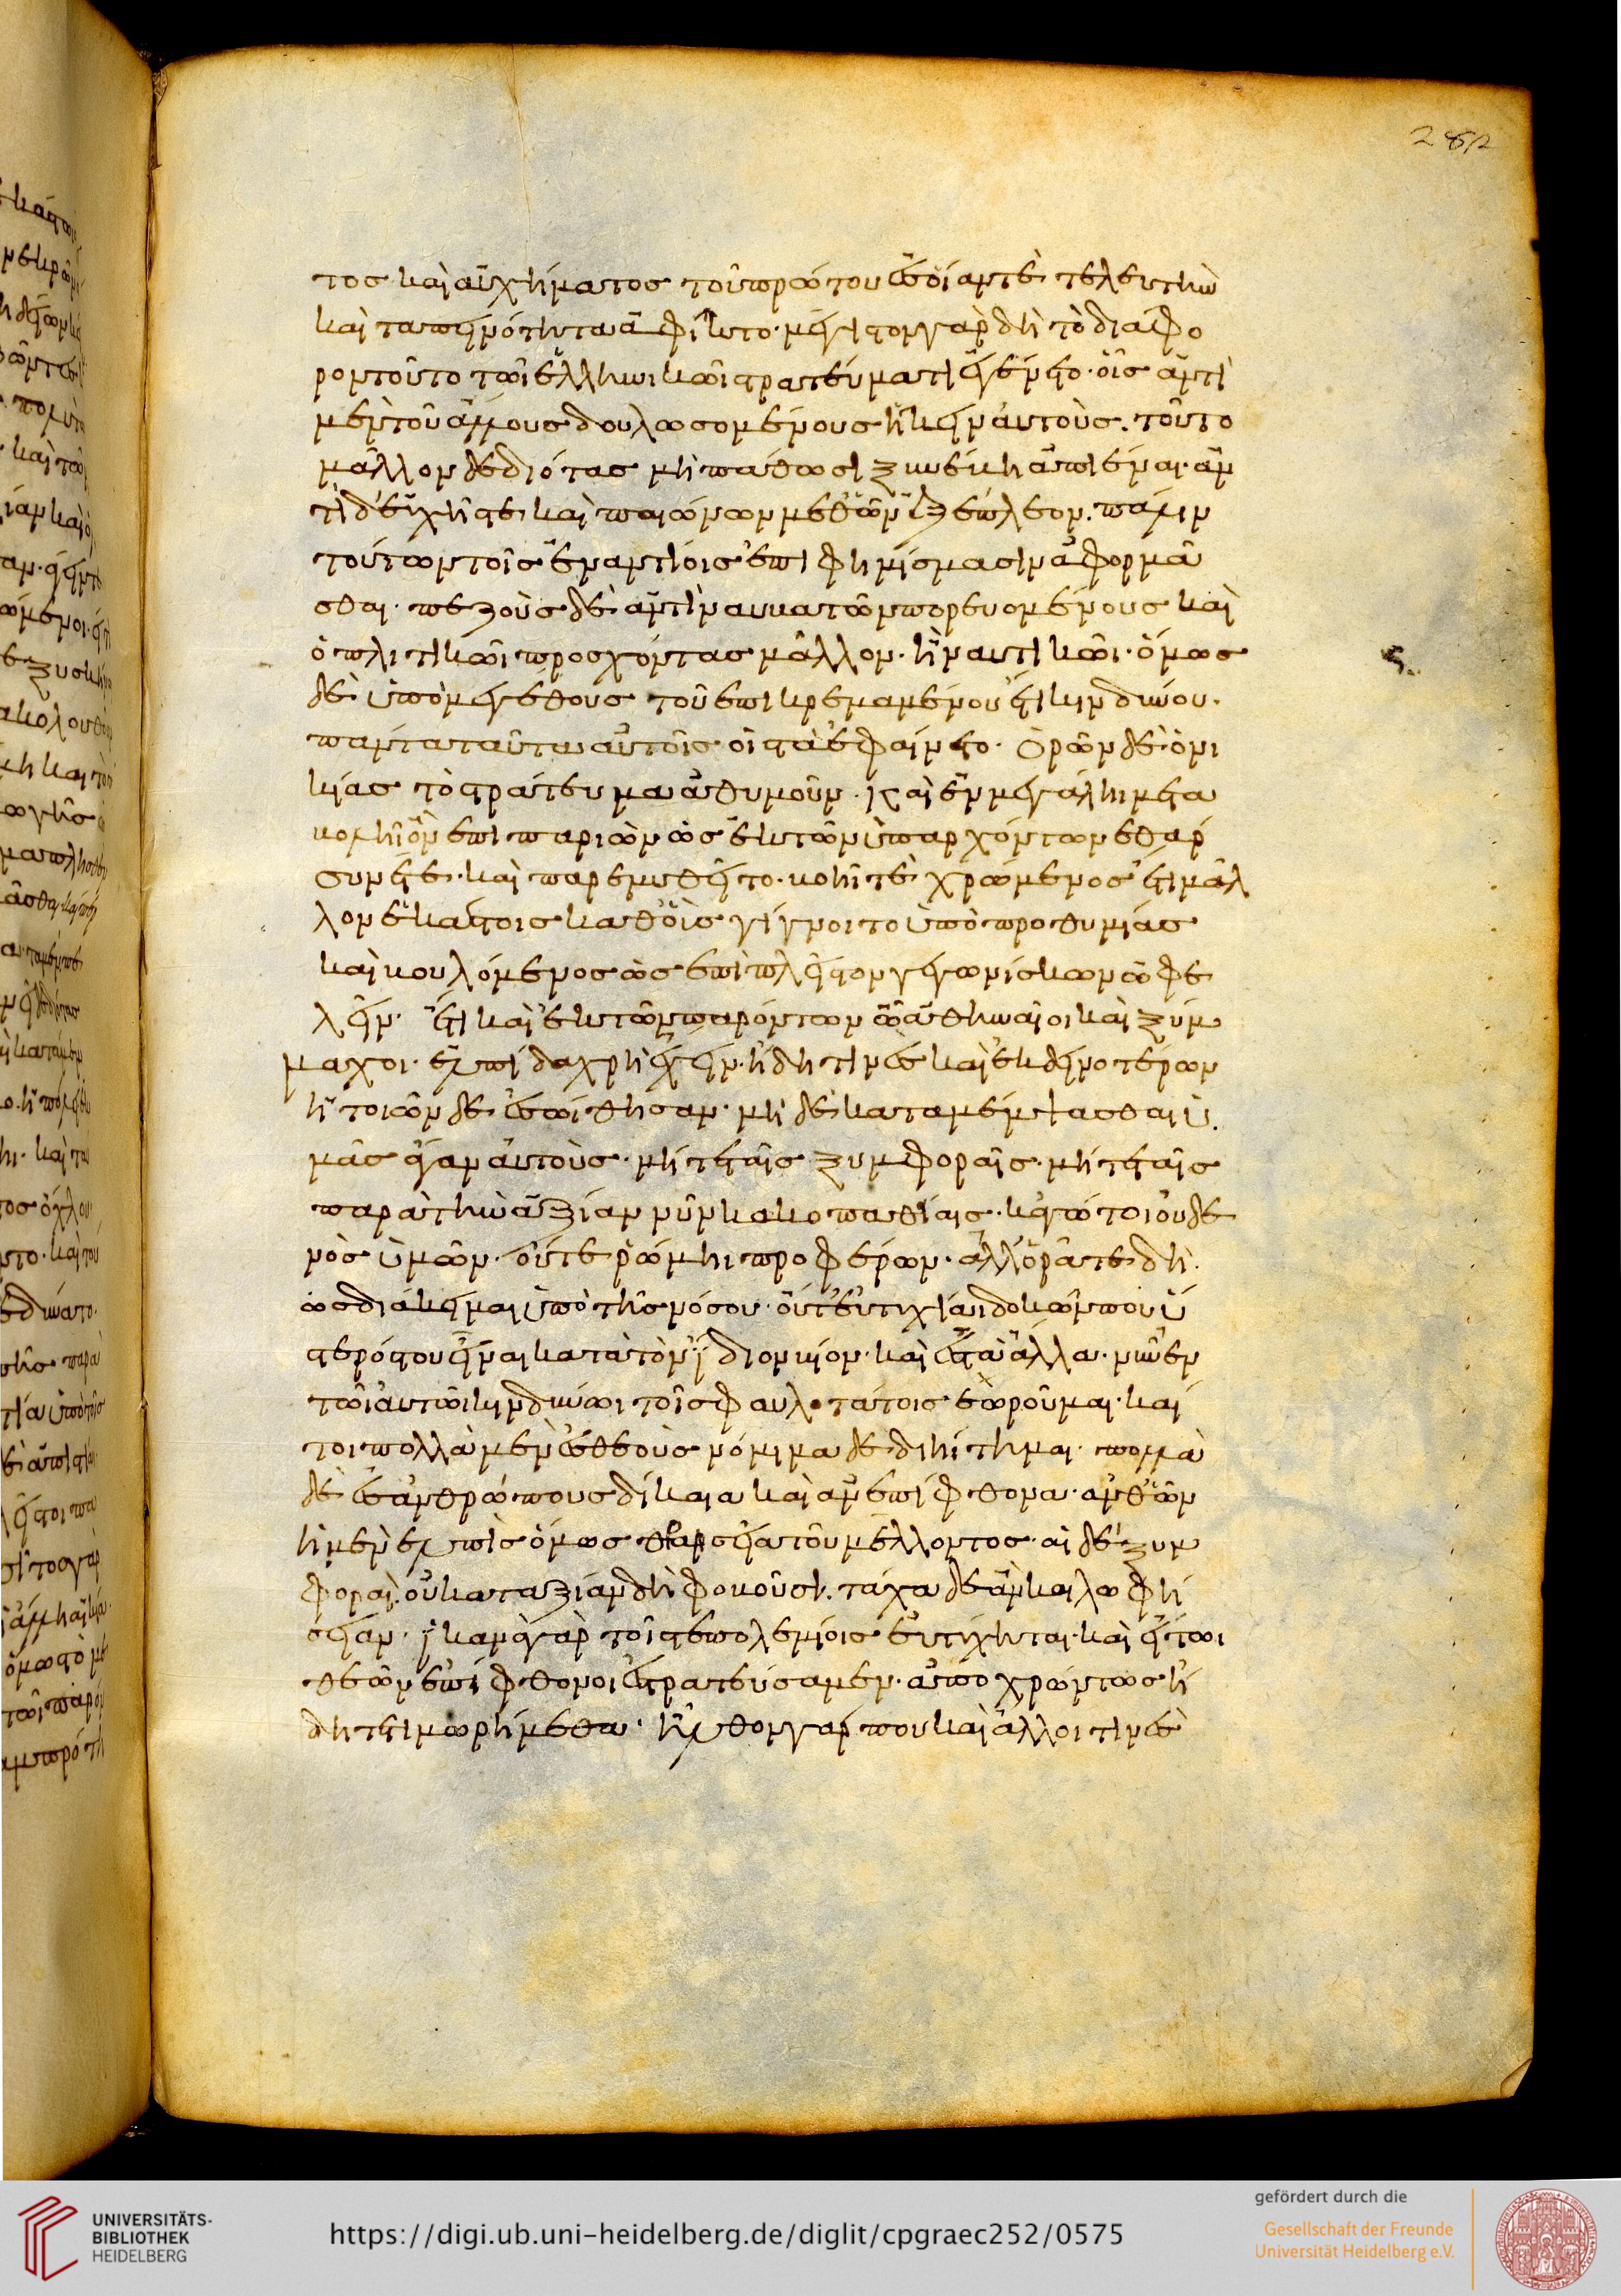 τος καὶ αὐχήματος τοῦ πρώτου ἐς οἵαν τὲ τελευτὴν
καὶ ταπεινότητα ἀφίκτο· μέγιστον γὰρ δὴ τὸ διάφο
ρον τοῦτο τῶι ἑλληνικῶι στρατεύματι ἐγένετο· οἷς ἀντὶ
μὲν τοῦ ἄλλους δουλωσομένους ἥκειν αὐτοὺς· τοῦτο
μᾶλλον δεδιότας μὴ πάθωσι ξυνέβη ἀπιέναι· ἀν
τὶ δ' εὐχῆς τε καὶ παιώνων μεθ' ὧν ἐξέπλεον· πάλιν
τούτων τοῖς ἐναντίοις ἐπιφημίσμασιν ἀφορμᾶ
σθαι· πεζοὺς δὲ ἀντὶ ναυβατῶν πορευομένους καὶ
ὁπλιτικῶι προσχόντας μᾶλλον· ἢ ναυτικῶι· ὅμως
δὲ ὑπὸ μεγέθους τοῦ ἐπικρεμαμένου ἔτι κινδύνου·
πάντα ταῦτα αὐτοῖς οἰστὰ ἐφαίνετο· Ὁρῶν δὲ ὁ νι
κίας τὸ στράτευμα ἀθυμοῦν· καὶ ἐν μεγάλῃ μετα
βολῆι ὂν ἐπιπαριὼν ὡς ἐκ τῶν ὑπαρχόντων ἐθάρ
συνέ τε· καὶ παρεμυθεῖτο· βοῆι τὲ χρώμενος ἔτι μᾶλ
λον ἑκάστοις καθ' οἷς γίγνοιτο ὑπὸ προθυμίας
καὶ βουλόμενος ὡς ἐπὶ πλεῖστον γεγωνίσκων ὠφε
λεῖν· ἔτι καὶ ἐκ τῶν παρόντων ὦ ἀθηναῖοι καὶ ξύμ
μαχοι· ἐλπίδα χρὴ ἔχειν· ἤδη τινὲς καὶ ἐκ δεινοτέρων
ἢ τοιῶνδε ἐσώθησαν· μὴ δὲ καταμέμψασθαι ὑ
μᾶς ἄγαν αὐτοὺς· μήτε ταῖς ξυμφοραῖς· μήτε ταῖς
παρὰ τὴν ἀξίαν νῦν κακοπαθίαις· κἀγώ τοι οὐδε
νὸς ὑμῶν· οὔτε ῥώμηι προφέρων· ἀλλ' ὁρᾶτε δὴ
ὡς διάκειμαι ὑπὸ τῆς νόσου· οὔτ' εὐτυχίαι δοκῶν που ὕ
στερός του εἶναι κατὰ τὸν ἴδιον βίον· καὶ ἐς τὰ ἄλλα· νῦν ἐν
τῶι αὐτῶι κινδύνωι τοῖς φαυλοτάτοις αἰωροῦμαι· καί
τοι πολλὰ μὲν ἐς θεοὺς νόμιμα δεδιήτημαι· πολλὰ
δὲ ἐς ἀνθρώπους δίκαια καὶ ἀνεπίφθονα· ἀνθ' ὧν
ἡ μὲν ἐλπὶς ὅμως θαρσεῖα τοῦ μέλλοντος· αἱ δὲ ξυμ
φοραὶ οὐ κατ' ἀξίαν δὴ φοβοῦσι· τάχα δὲ ἂν καὶ λωφή
σειαν· ἱκανὰ γὰρ τοῖς τε πολεμίοις εὐτύχηται· καὶ εἴ τωι
θεῶν ἐπίφθονοι ἐστρατεύσαμεν· ἀποχρώντως ἤ
δη τετιμωρήμεθα· ἦλθον γάρ που καὶ ἄλλοι τινὲς
282
UNIVERSITÄTS-
BIBLIOTHEK
HEIDELBERG
https://digi.ub.uni-heidelberg.de/diglit/cpgraec252/0575
gefördert durch die
Gesellschaft der Freunde
Universität Heidelberg e.V.